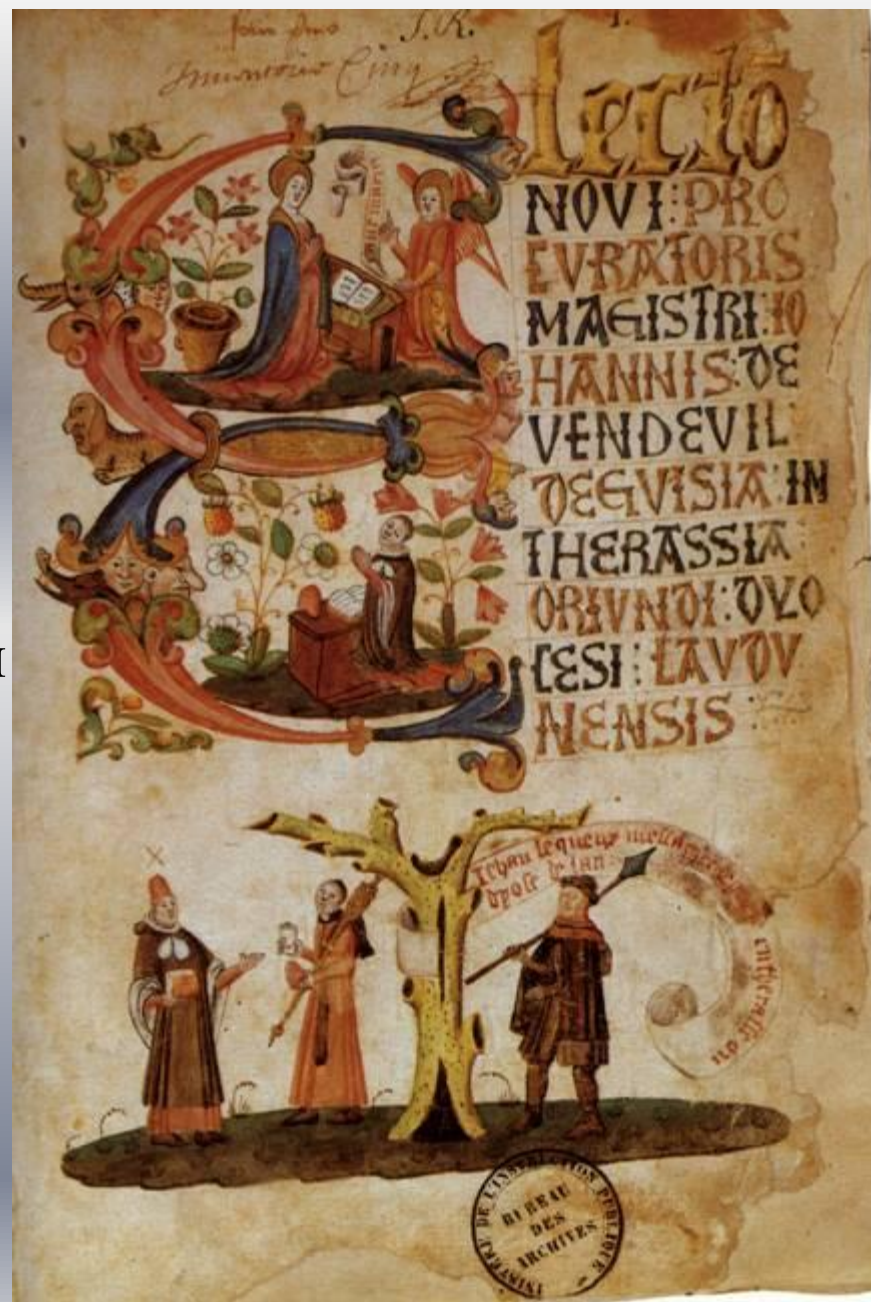 J.R.
Electō
NOVI : PRO
CVRATORIS
MAGISTRI : IO
HANNIS : DE
VENDEVIL
DEGVISIA : IN
THERASSIA
ORIVNDI : DVO
CESI : LAVDV
NENSIS :
Jehan lequeux
MINISTÈRE DE L'INSTRUCTION PUBLIQUE
BUREAU
DES
ARCHIVES